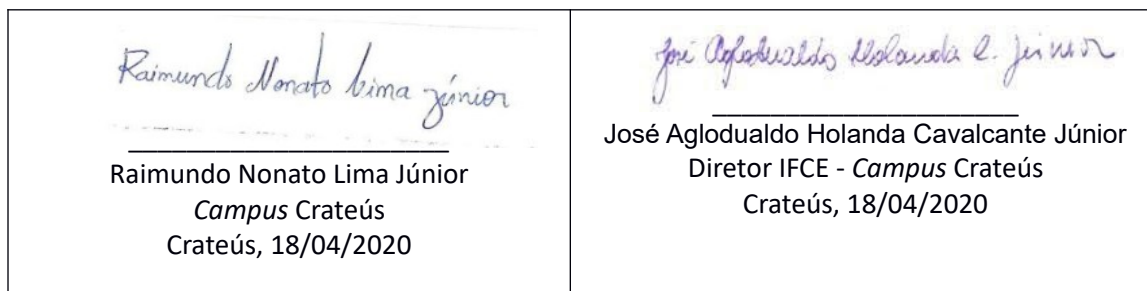 Raimundo Nonato Lima júnior
Raimundo Nonato Lima Júnior
Campus Crateús
Crateús, 18/04/2020
José Aglodualdo Holanda C. Júnior
José Aglodualdo Holanda Cavalcante Júnior
Diretor IFCE - Campus Crateús
Crateús, 18/04/2020